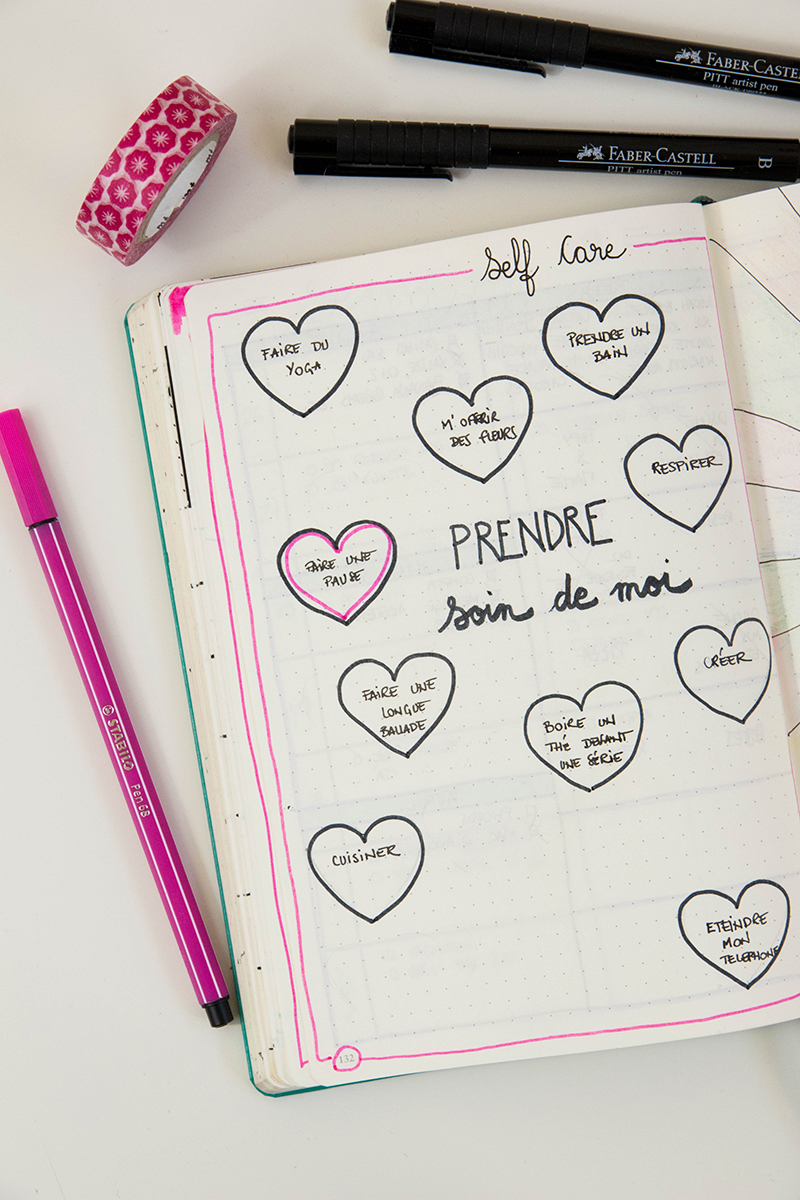 FABER-CASTELL
PITT artist pen
FABER-CASTELL
PITT artist pen
B
Self Care
FAIRE DU
YOGA
PRENDRE UN
BAIN
M'OFFRIR
DES FLEURS
RESPIRER
PRENDRE
soin de moi
FAIRE UNE
PAUSE
CRÉER
FAIRE UNE
LONGUE
BALLADE
BOIRE UN
THÉ DEVANT
UNE SÉRIE
STABILO Pen 68
CUISINER
ETEINDRE
MON
TELEPHONE
132